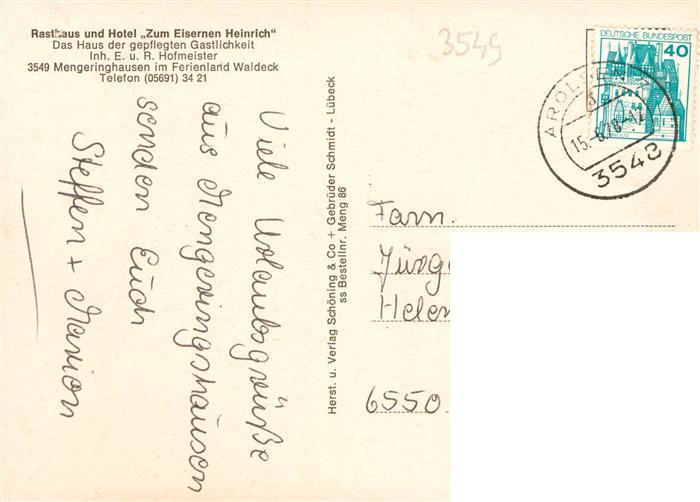 Rasthaus und Hotel „Zum Eisernen Heinrich"
Das Haus der gepflegten Gastlichkeit
Inh. E. u. R. Hofmeister
3549 Mengeringhausen im Ferienland Waldeck
Telefon (05691) 34 21
Viele Urlaubsgrüße
aus Mengeringshausen
senden Euch
Steffen + Marion
Herst. u. Verlag Schöning & Co + Gebrüder Schmidt - Lübeck
ss Bestellnr. Meng 86
3549
DEUTSCHE BUNDESPOST
40
AROLSEN
15.-6.78-12
3548
Fam.
Jürge
Helen
6550